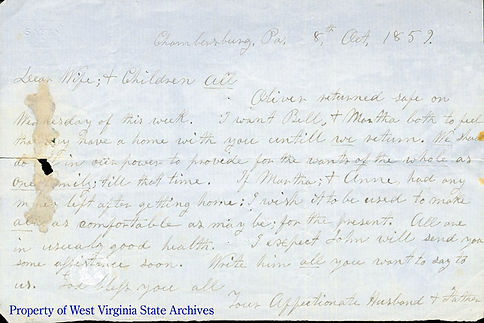 Chambersburg, Pa. 8th Oct, 1859.
Dear Wife; & Children All
Oliver returned safe on
Wednesday of this week. I want Bell, & Martha both to feel
that they have a home with you untill we return. We shall
do all in our power to provide for the wants of the whole as
one family; till that time. If Martha; & Anne, had any
money left after getting home: I wish it to be used to make
all as comfortable as may be; for the present. All are
in usualy good health. I expect John will send you
some assistance soon. Write him all you want to say to
us. God bless you all
Your Affectionate Husband & Father
Property of West Virginia State Archives